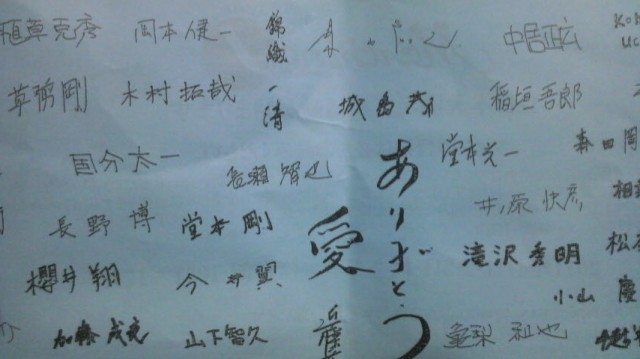 植草克彦 岡本健一 錦織一清 中居正広
草彅剛 木村拓哉 城島茂 稲垣吾郎
国分太一 長瀬智也 堂本光一 森田剛
長野博 堂本剛 井ノ原快彦
櫻井翔 今井翼 滝沢秀明
小山慶
加藤成亮 山下智久 亀梨和也
ありがとう
愛